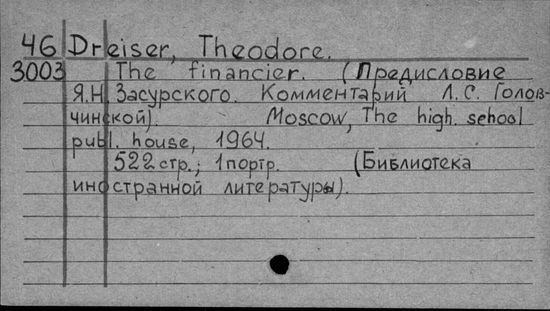 46 Dreiser, Theodore.
3003 The financier. (Предисловие
Я.Н. Засурского. Комментарий Л.С. Голов-
чинской). Moscow, The high. sehool
publ. house, 1964.
522 стр.; 1 портр. (Библиотека
иностранной литературы).